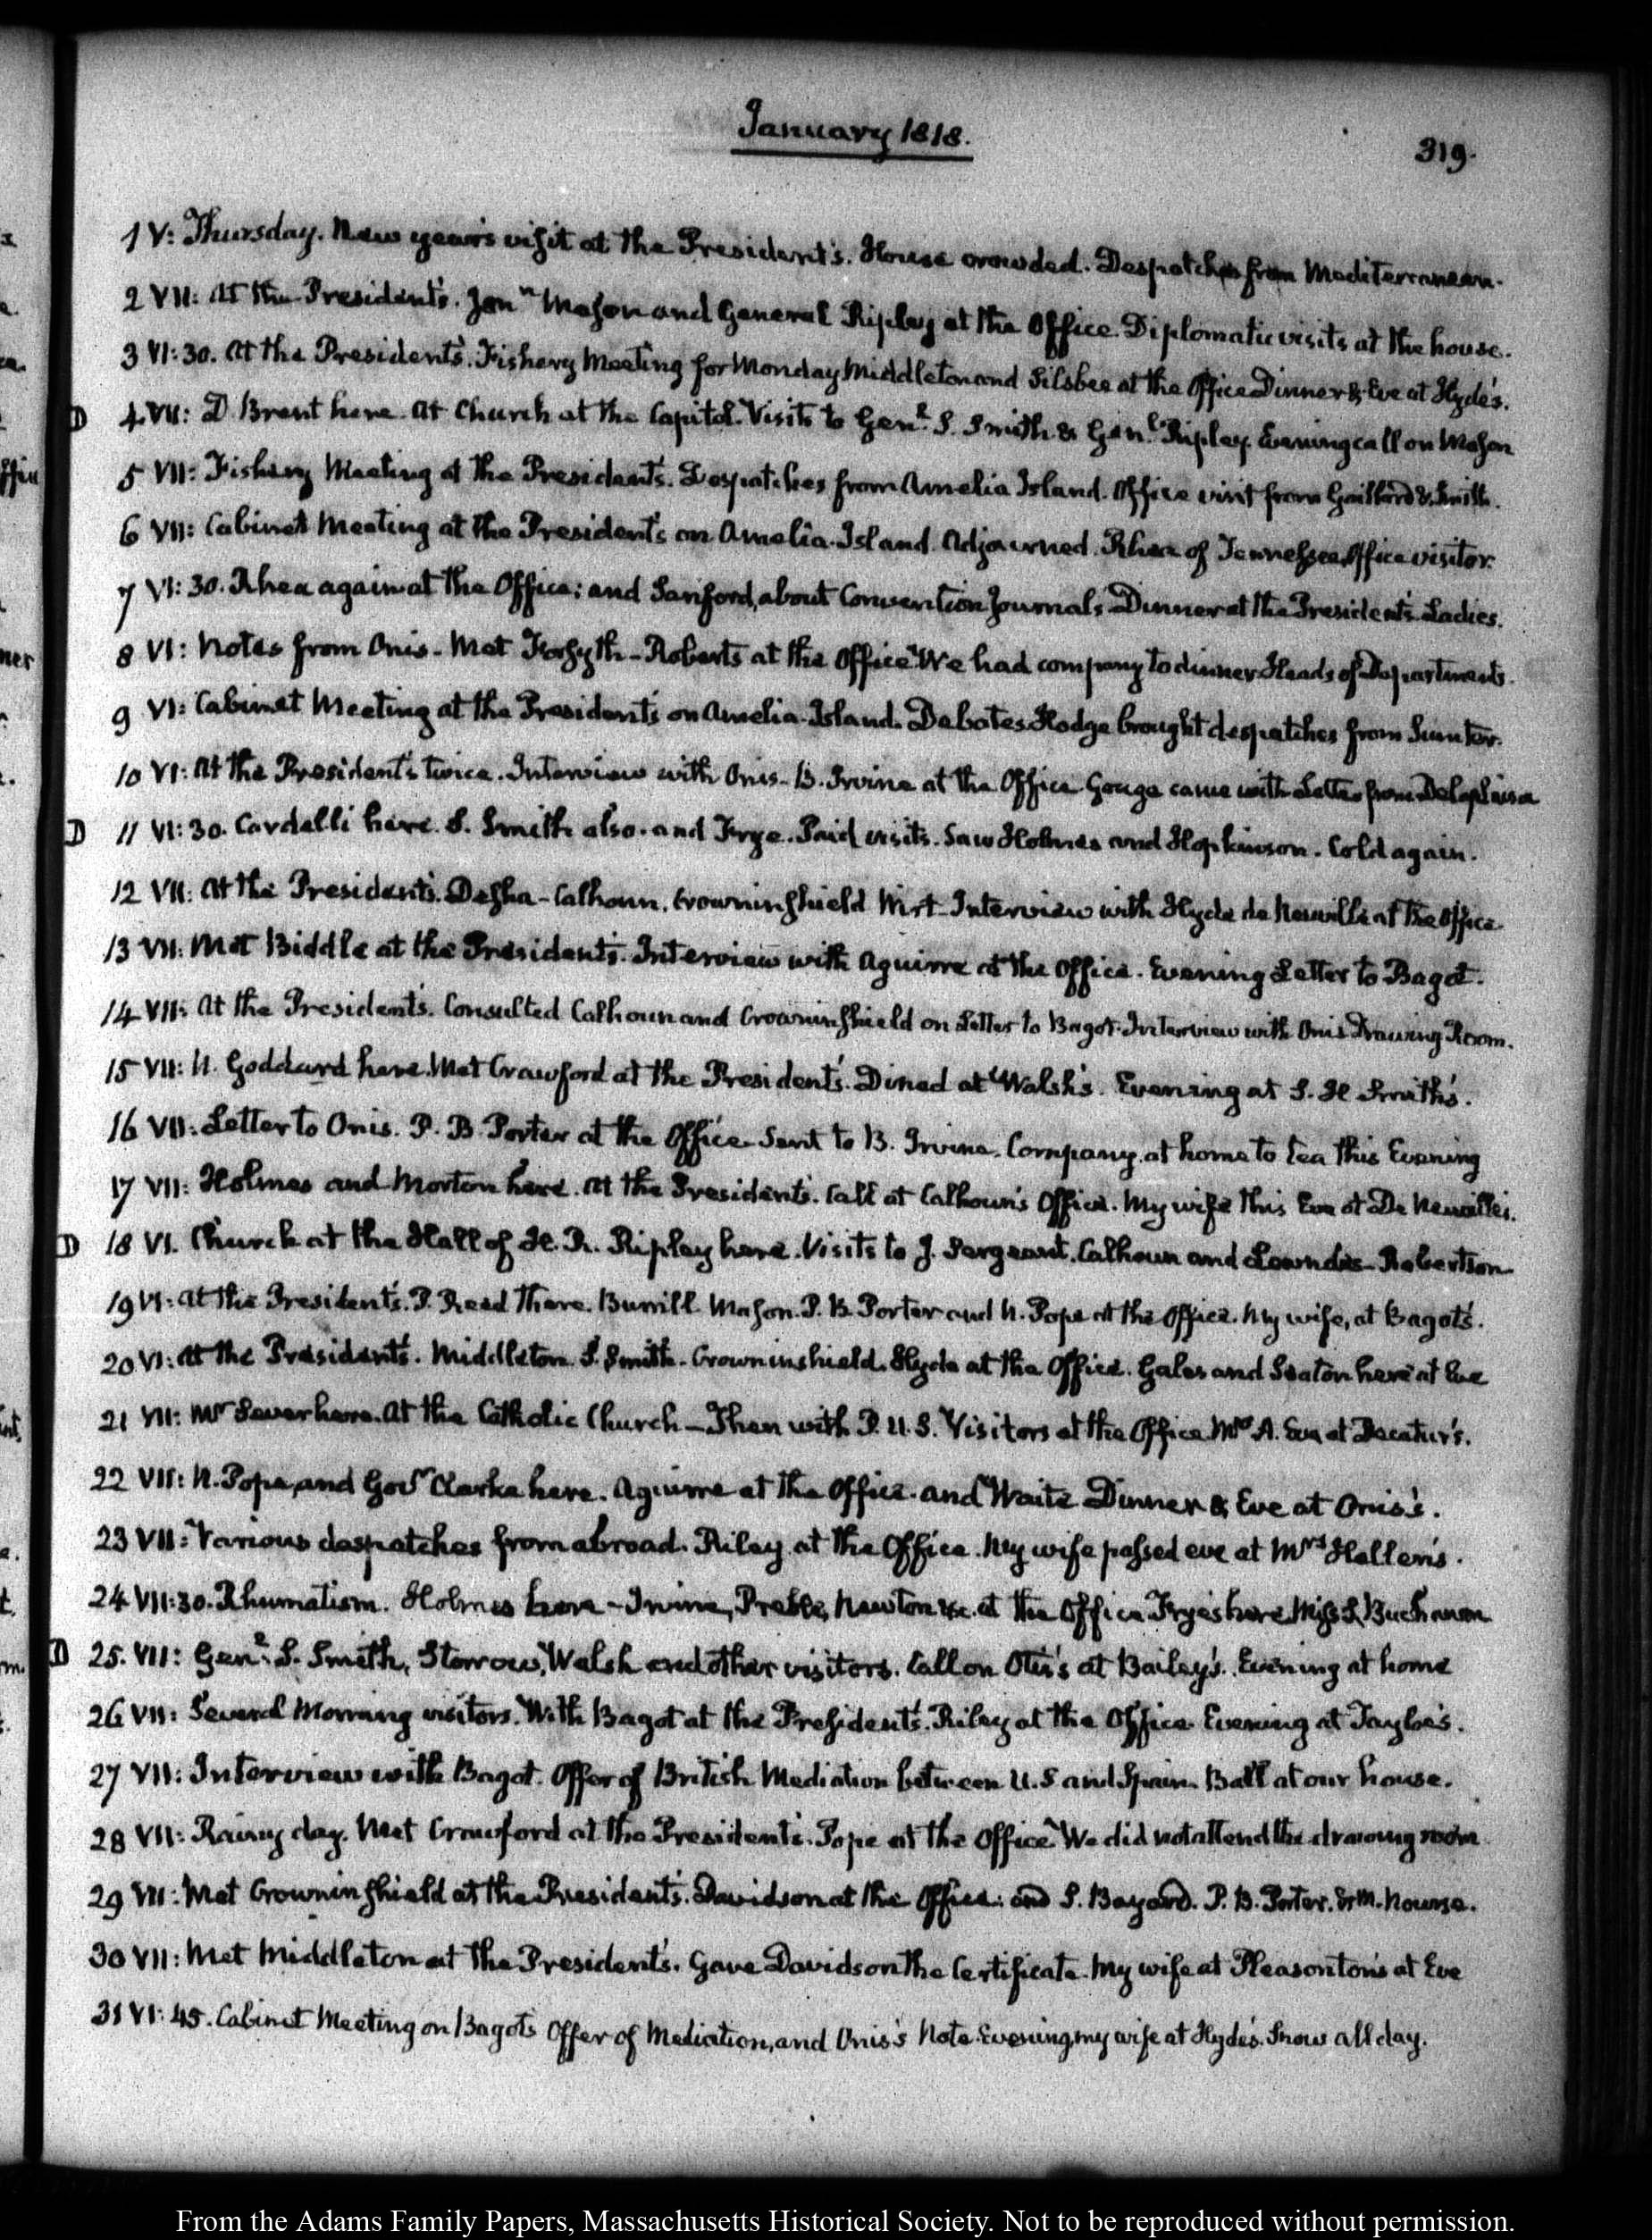 January 1818.
319.
1 V: Thursday. New year's visit at the President's. House crowded. Despatches from Mediterranean.
2 VII: At the President's. Jonn Mason and General Ripley at the Office. Diplomatic visits at the house.
3 VI:30. At the President's. Fishery Meeting for Monday Middleton and Silsbee at the Office Dinner & Eve at Hyde's.
D 4 VII: D. Brent here. At Church at the Capitol. Visits to Genl. S. Smith & Genl. Ripley. Evening call on Mason
5 VII: Fishery Meeting at the President's. Despatches from Amelia Island. Office visit from Gaillard & Smith.
6 VII: Cabinet Meeting at the President's on Amelia Island. Adjourned. Rhea of Tennessee, Office visitor.
7 VI:30. Rhea again at the Office; and Sanford, about Convention Journals. Dinner at the President's. Ladies.
8 VI: Notes from Onis - Met Forsyth - Roberts at the Office. We had company to dinner Heads of Departments.
9 VI: Cabinet Meeting at the President's on Amelia Island. Debates. Hodge brought despatches from Sumter.
10 VI: At the President's twice. Interview with Onis - B. Irvine at the Office Gouge came with Letter from Delaplaine
D 11 VI:30. Cardelli here. S. Smith also. and Frye. Paid visits. Saw Holmes and Hopkinson. Cold again.
12 VII: At the President's. Desha - Calhoun. Crowninshield Wirt - Interview with Hyde de Neuville at the Office.
13 VII: Met Biddle at the President's. Interview with Aguirre at the Office. Evening Letter to Bagot.
14 VII: At the President's. Consulted Calhoun and Crowninshield on Letter to Bagot. Interview with Onis Drawing Room.
15 VII: N. Goddard here. Met Crawford at the President's. Dined at Walsh's. Evening at S. H Smith's.
16 VII: Letter to Onis. P. B. Porter at the Office Sent to B. Irvine. Company at home to tea this Evening
17 VII: Holmes and Morton here. At the President's. Call at Calhoun's Office. My wife this Eve at De Neuville's.
D 18 VI. Church at the Hall of H. R. Ripley here. Visits to J. Sergeant. Calhoun and Lowndes - Robertson
19 VI: At the President's. P. Read there. Burrill Mason. P. B. Porter and N. Pope at the Office. My wife, at Bagot's.
20 VI: At the President's. Middleton. S. Smith. Crowninshield. Hyde at the Office. Gales and Seaton here at Eve
21 VII: Mr Sever here. At the Catholic Church - Then with P. U.S. Visitors at the Office. Mrs A. Eve at Decatur's.
22 VII: N. Pope, and Govr Clarke here. Aguirre at the Office. and Waite Dinner & Eve at Onis's.
23 VII: Various despatches from abroad. Riley at the Office. My wife passed eve at Mrs Hellen's.
24 VII:30. Rhumatism. Holmes here - Irvine, Preble, Newton &c. at the Office Fryes here Miss S. Buchanan
D 25. VII: Genl. S. Smith, Storrow, Walsh and other visitors. Call on Otis's at Bailey's. Evening at home
26 VII: Several Morning visitors. With Bagot at the President's. Riley at the Office Evening at Tayloe's.
27 VII: Interview with Bagot. Offer of British Mediation between U.S and Spain. Ball at our house.
28 VII: Rainy day. Met Crawford at the President's. Pope at the Office. We did not attend the drawing room
29 VII: Met Crowninshield at the President's. Davidson at the Office: and S. Bayard. P. B. Porter. & M. Nourse.
30 VII: Met Middleton at the President's. Gave Davidson the Certificate. My wife at Pleasonton's at Eve
31 VI: 45. Cabinet Meeting on Bagot's Offer of Mediation, and Onis's Note Evening, my wife at Hyde's. Snow all day.
From the Adams Family Papers, Massachusetts Historical Society. Not to be reproduced without permission.